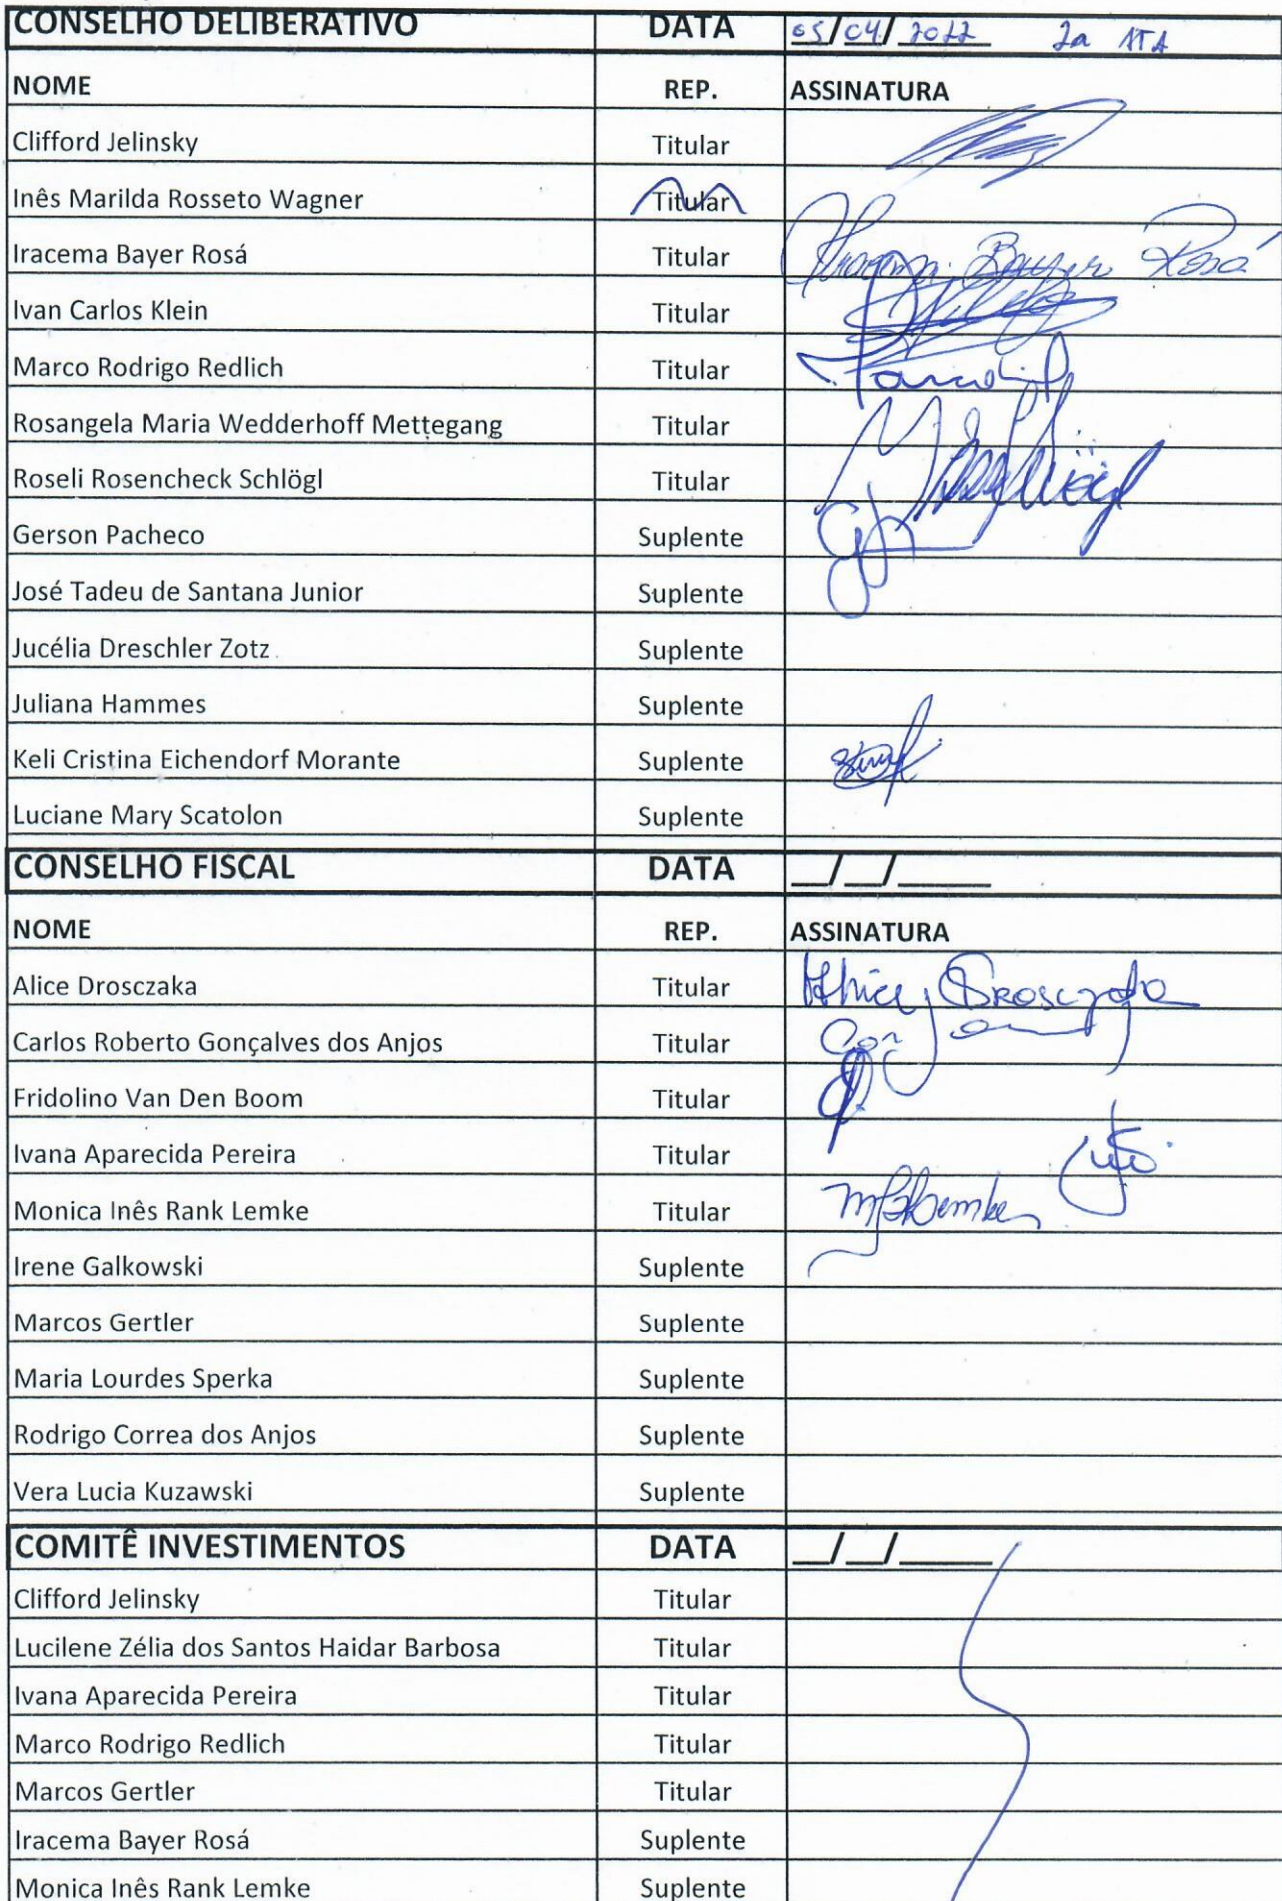 CONSELHO DELIBERATIVO DATA 05/04/2022 2a ATA
NOME REP. ASSINATURA
Clifford Jelinsky Titular
Inês Marilda Rosseto Wagner Titular
Iracema Bayer Rosá Titular Iracema Bayer Rosá
Ivan Carlos Klein Titular
Marco Rodrigo Redlich Titular
Rosangela Maria Wedderhoff Mettegang Titular
Roseli Rosencheck Schlögl Titular
Gerson Pacheco Suplente
José Tadeu de Santana Junior Suplente
Jucélia Dreschler Zotz Suplente
Juliana Hammes Suplente
Keli Cristina Eichendorf Morante Suplente
Luciane Mary Scatolon Suplente
CONSELHO FISCAL DATA __/__/_____
NOME REP. ASSINATURA
Alice Drosczaka Titular Alice Drosczaka
Carlos Roberto Gonçalves dos Anjos Titular
Fridolino Van Den Boom Titular
Ivana Aparecida Pereira Titular
Monica Inês Rank Lemke Titular
Irene Galkowski Suplente
Marcos Gertler Suplente
Maria Lourdes Sperka Suplente
Rodrigo Correa dos Anjos Suplente
Vera Lucia Kuzawski Suplente
COMITÊ INVESTIMENTOS DATA __/__/_____
Clifford Jelinsky Titular
Lucilene Zélia dos Santos Haidar Barbosa Titular
Ivana Aparecida Pereira Titular
Marco Rodrigo Redlich Titular
Marcos Gertler Titular
Iracema Bayer Rosá Suplente
Monica Inês Rank Lemke Suplente